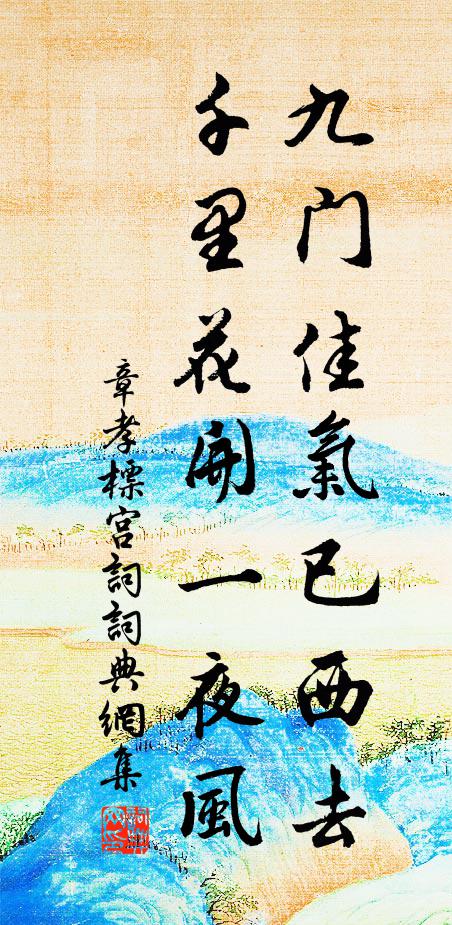 九门佳氣已西去
千里花開一夜風
章孝標宮詞詞典網集